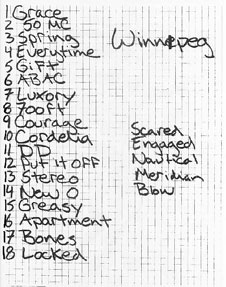 1 Grace
2 50 MC
3 Spring
4 Everytime
5 Gift
6 ABAC
7 Luxory
8 700ft
9 Courage
10 Cordelia
11 PP
12 Put it OFF
13 Stereo
14 New O
15 Greasy
16 Apartment
17 Bones
18 Locked
Winnipeg
Scared
Engaged
Nautical
Meridian
Blow